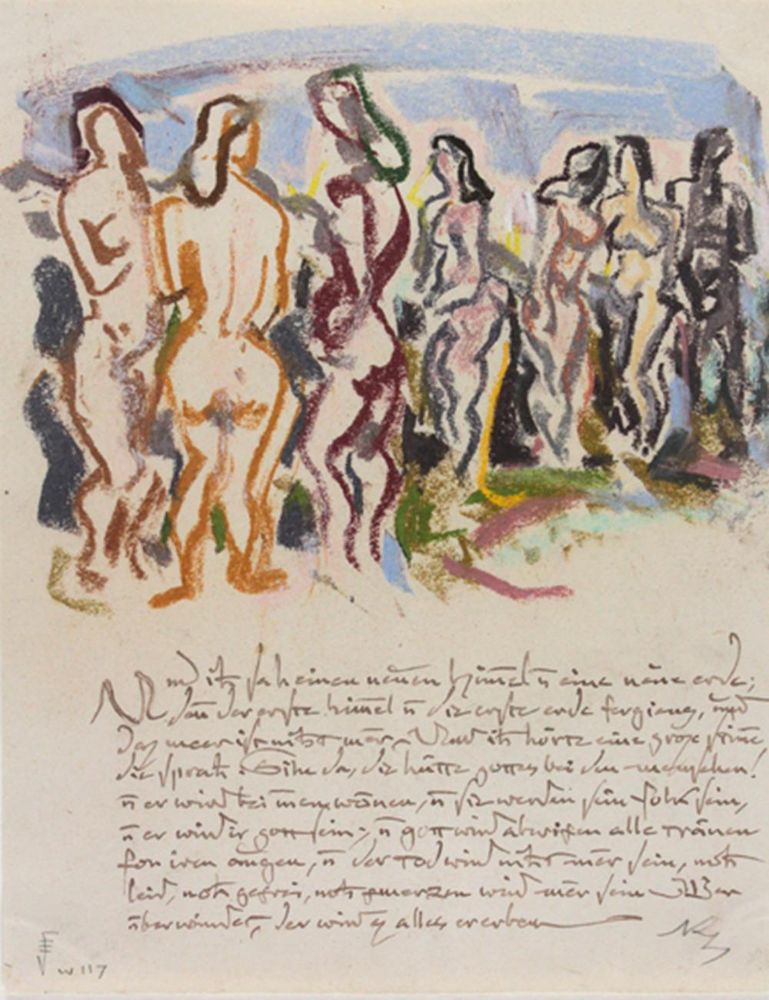 Und ich sah einen neuen himel ū eine nӓue erde;
dan̄ der erste himel ū die erste erde ferging, und
daz meer ist nicht mer. Und ich hörte eine groze stimme,
die sprach: Sihe da, die hütte gottes bei den menschen!
ū er wird bei inen wonen, ū sie werden sein folk sein,
ū er wird ir gott sein; ū gott wird abwischen alle trӓnen
fon iren augen, ū der tod wird nicht mer sein, noch
leid, noch geschrei, noch schmerzen wird mer sein Wer
überwindet, der wird es alles ererben
w 117